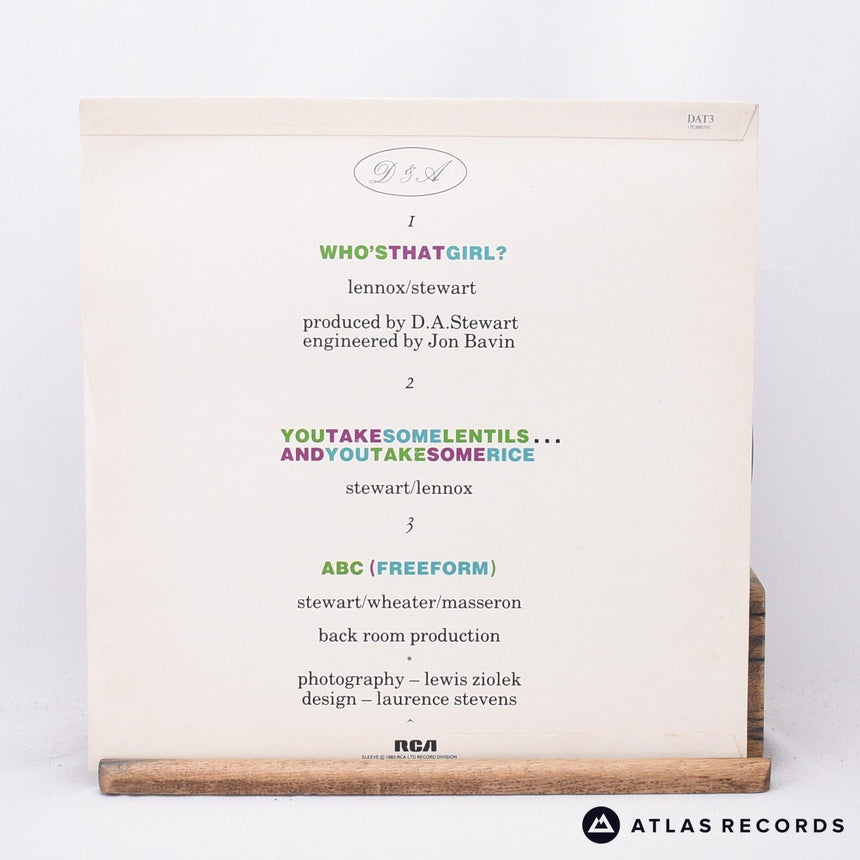 DAT3
D & A
1
WHO'STHATGIRL?
lennox/stewart
produced by D.A.Stewart
engineered by Jon Bavin
2
YOUTAKESOMELENTILS...
ANDYOUTAKESOMERICE
stewart/lennox
3
ABC (FREEFORM)
stewart/wheater/masseron
back room production
photography – lewis ziolek
design – laurence stevens
RCA
SLEEVE © 1983 RCA LTD RECORD DIVISION
ATLAS RECORDS